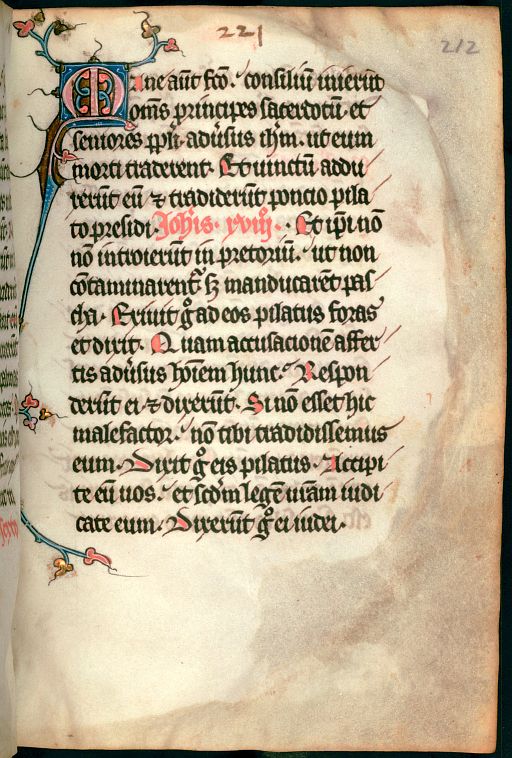 221
212
Mane aut fco. consiliū inierūt
oms principes sacerdotū. et
seniores ppli. adusus ihm. ut eum
morti traderent. Et uinctū addu
xerūt eū ⁊ tradiderūt poncio pila
to presidi. Johis. xviij. Et ipi nō
nō introierūt in pretoriū. ut non
cōtaminarent̄ sꝫ manducarēt pas
cha. Exiuit gͦ ad eos pilatus foras
et dixit. Quam accusacionē affer
tis adusus hoīem hunc. Respon
derūt ei ⁊ dixerūt. Si nō esset hic
malefactor. nō tibi tradidissemus
eum. Dixit gͦ eis pilatus. Accipi
te eū uos. et scdm legē uram iudi
cate eum. Dixerūt gͦ ei iudei.